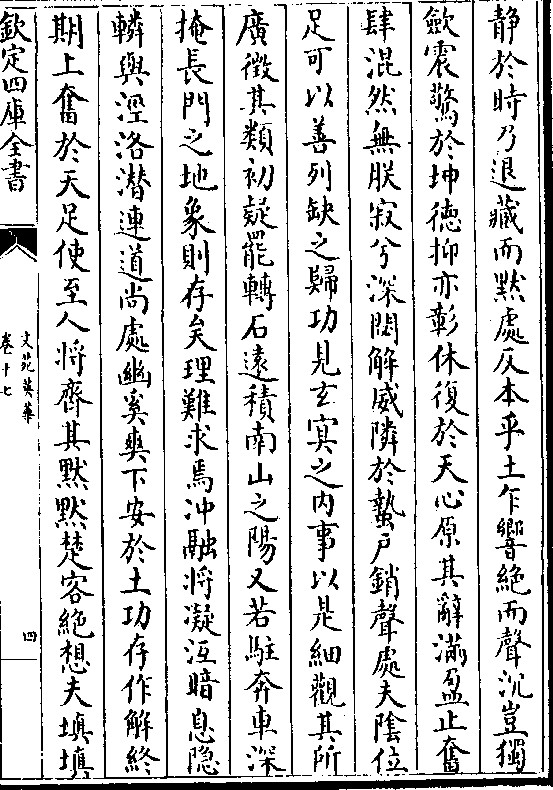 静於時乃退藏而默處反本乎土乍響絶而聲沉豈獨
歛震驚於坤德抑亦彰休復於天心原其辭滿盈止奮
肆混然無朕寂兮深閟解威隣於蟄戶銷聲處夫陰位
足可以善列缺之歸功見玄㝠之内事以是細觀其所
廣徴其類初疑罷轉石逺積南山之陽又若駐奔車深
掩長門之地象則存矣理難求焉冲融將凝沍暗息隐
轔與涇洛潛連道尚處幽奚爽下安於土功存作解終
期上奮於天足使至人將齊其黙黙楚客絶想夫填填
欽定四庫全書
文苑英華
卷十七
四